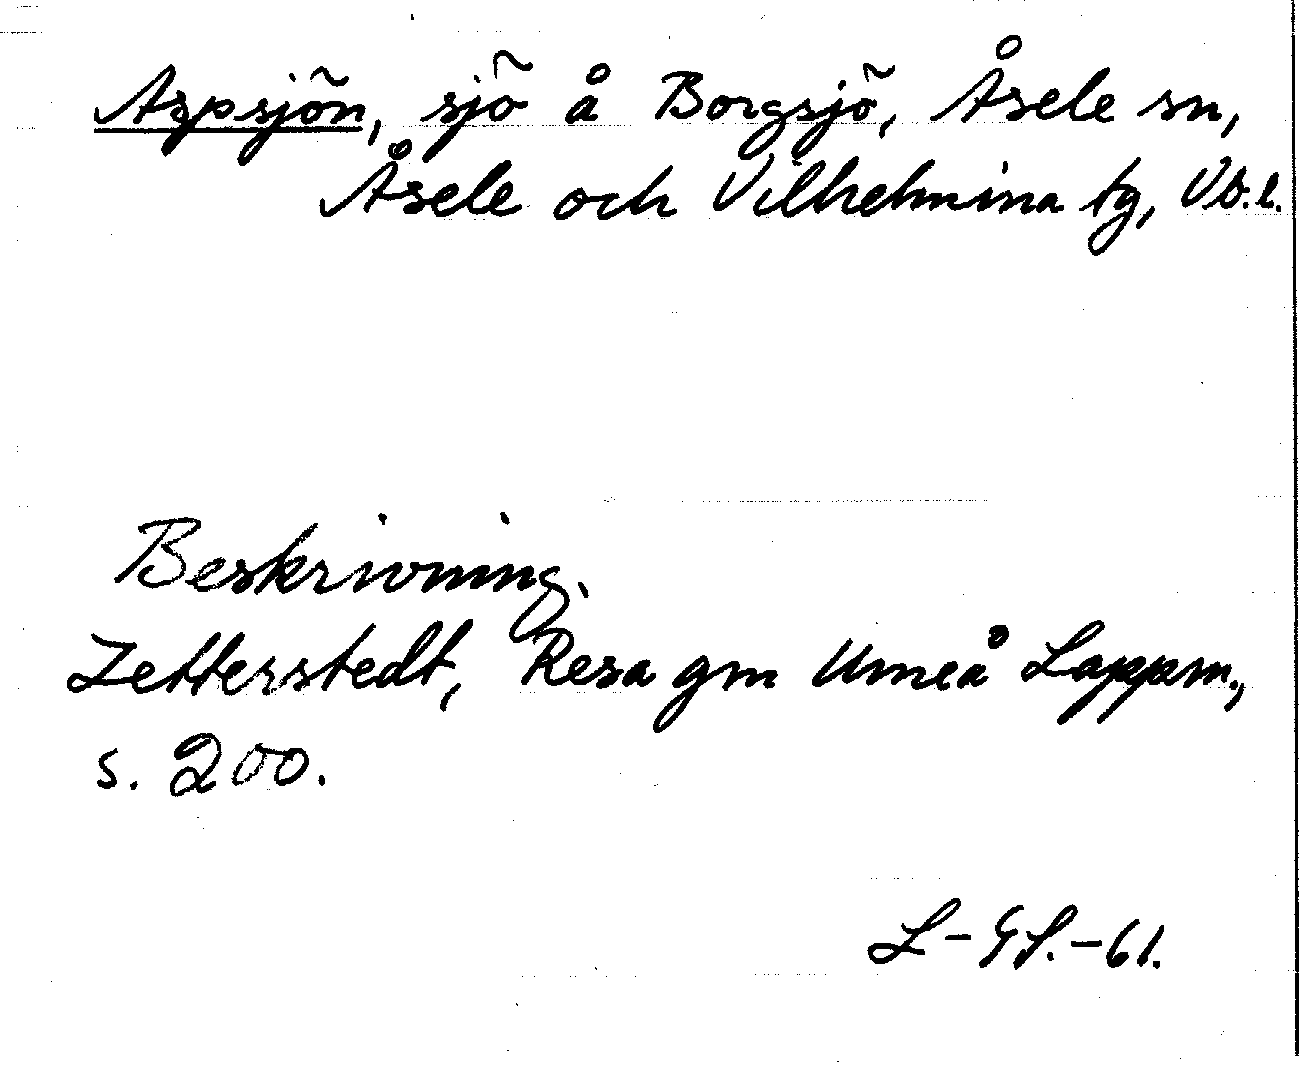 Aspsjön, sjö å Borgsjö, Åsele sn,
Åsele och Vilhelmina tg, Vb.l.
Beskrivning.
Zetterstedt, Resa gm Umeå Lappm.,
s. 200.
L-GS.-61.